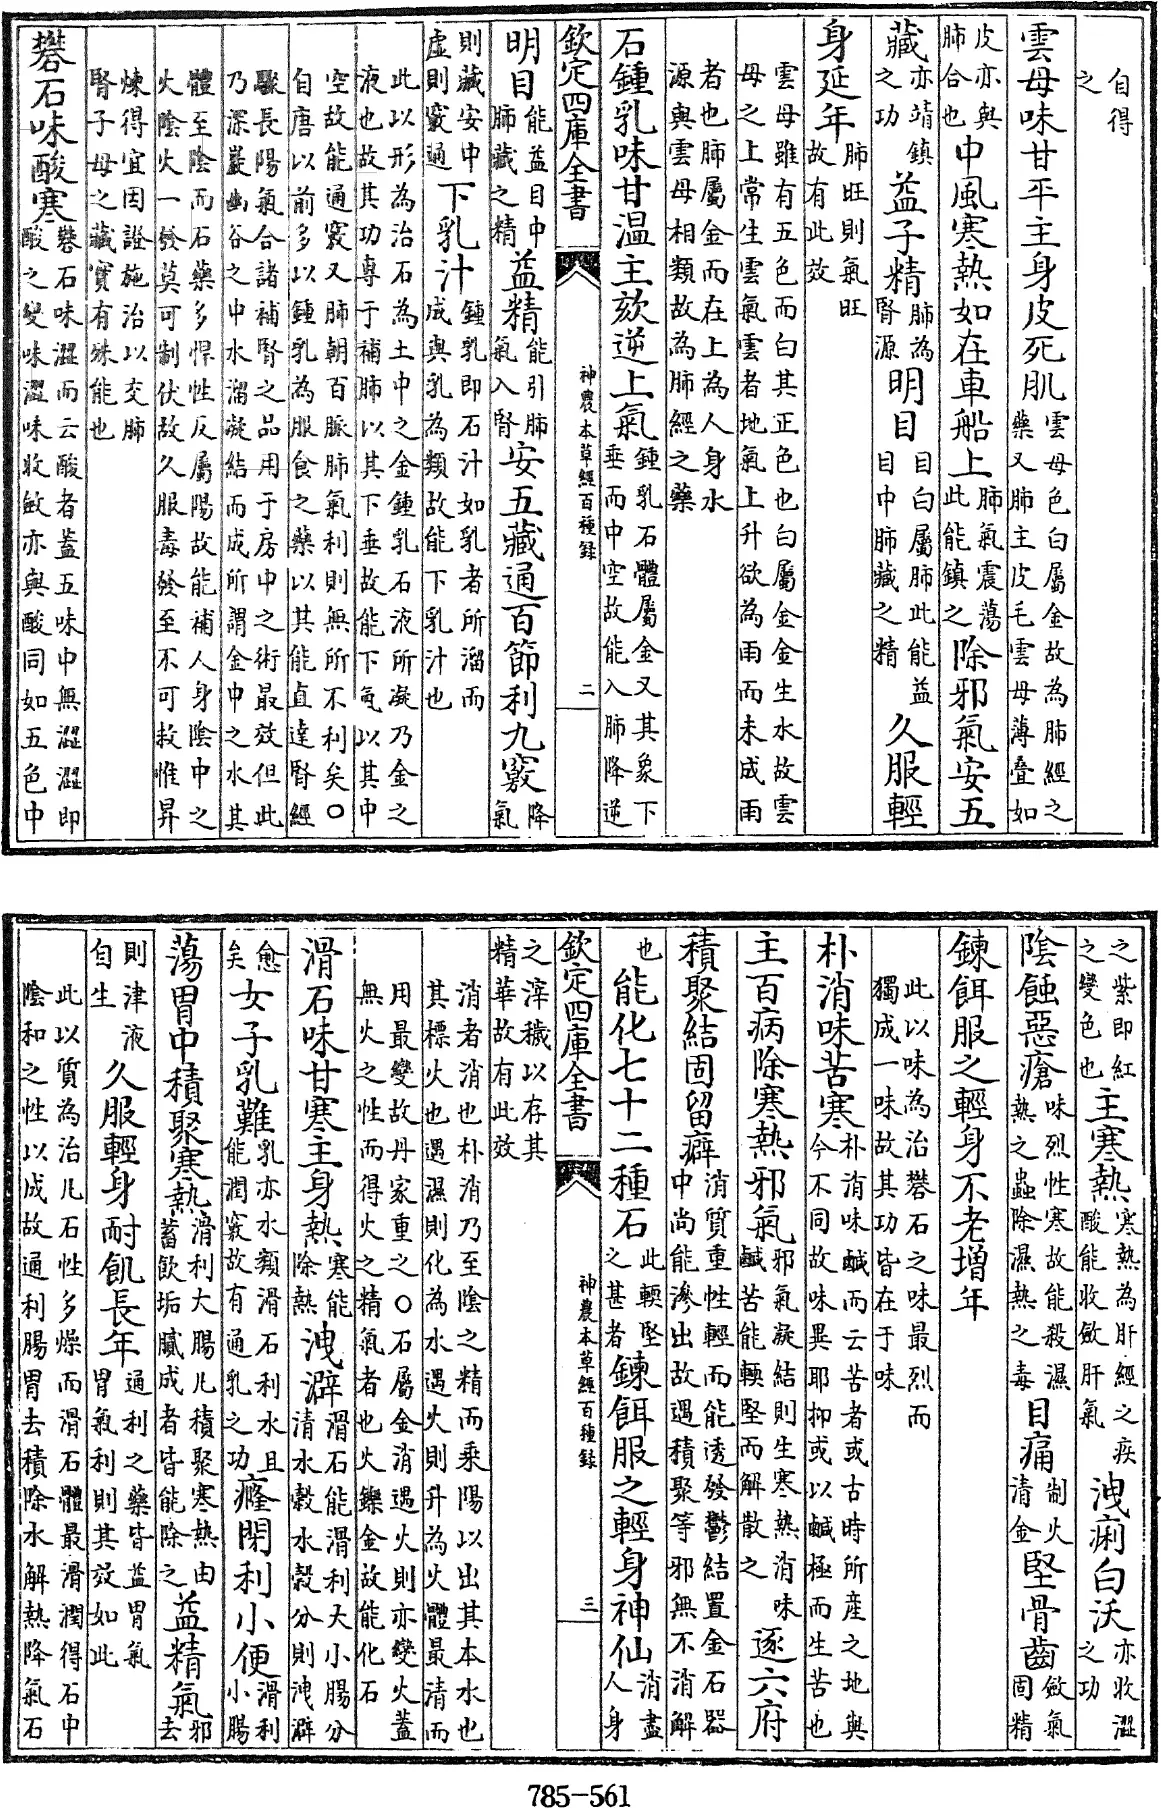 自得之
雲母味甘平主身皮死肌雲母色白屬金故為肺經之藥又肺主皮毛雲母薄疊如
皮亦與肺合也中風寒熱如在車船上肺氣震蕩此能鎮之除邪氣安五
藏亦靖鎮之功益子精肺為腎源明目目白屬肺此能益目中肺藏之精久服輕
身延年肺旺則氣旺故有此效
雲母雖有五色而白其正色也白屬金金生水故雲母之上常生雲氣雲者地氣上升欲為雨而未成雨
者也肺屬金而在上為人身水源與雲母相類故為肺經之藥
石鍾乳味甘温主欬逆上氣鍾乳石體屬金又其象下垂而中空故能入肺降逆
欽定四庫全書 神農本草經百種錄 二
明目能益目中肺藏之精益精能引肺氣入腎安五藏通百節利九竅降氣
則藏安中虛則竅通下乳汁鍾乳即石汁如乳者所溜而成與乳為類故能下乳汁也
此以形為治石為土中之金鍾乳石液所凝乃金之液也故其功專于補肺以其下垂故能下氣以其中
空故能通竅又肺朝百脈肺氣利則無所不利矣〇自唐以前多以鍾乳為服食之藥以其能直達腎經
驟長陽氣合諸補腎之品用于房中之術最效但此乃深巖幽谷之中水溜凝結而成所謂金中之水其
體至陰而石藥多悍性反屬陽故能補人身陰中之火陰火一發莫可制伏故久服毒發至不可救惟昇
煉得宜因證施治以交肺腎子母之藏實有殊能也
礬石味酸寒礬石味澀而云酸者蓋五味中無澀澀即酸之變味澀味收斂亦與酸同如五色中
之紫即紅之變色也主寒熱寒熱為肝經之疾酸能收斂肝氣洩痢白沃亦收澀之功
陰蝕惡瘡味烈性寒故能殺濕熱之蟲除濕熱之毒目痛制火清金堅骨齒斂氣固精
鍊餌服之輕身不老增年
此以味為治礬石之味最烈而獨成一味故其功皆在于味
朴消味苦寒朴消味鹹而云苦者或古時所產之地與今不同故味異耶抑或以鹹極而生苦也
主百病除寒熱邪氣邪氣凝結則生寒熱消味鹹苦能輭堅而解散之逐六府
積聚結固留癖消質重性輕而能透發鬱結置金石器中尚能滲出故遇積聚等邪無不消解
也能化七十二種石此輭堅之甚者鍊餌服之輕身神仙消盡人身
欽定四庫全書 神農本草經百種錄 三
之滓穢以存其精華故有此效
消者消也朴消乃至陰之精而乘陽以出其本水也其標火也遇濕則化為水遇火則升為火體最清而
用最變故丹家重之〇石屬金消遇火則亦變火蓋無火之性而得火之精氣者也火鑠金故能化石
滑石味甘寒主身熱寒能除熱洩澼滑石能滑利大小腸分清水穀水穀分則洩澼
愈矣女子乳難乳亦水類滑石利水且能潤竅故有通乳之功癃閉利小便滑利小腸
蕩胃中積聚寒熱滑利大腸凡積聚寒熱由蓄飲垢膩成者皆能除之益精氣邪去
則津液自生久服輕身耐飢長年通利之藥皆益胃氣胃氣利則其效如此
此以質為治凡石性多燥而滑石體最滑潤得石中陰和之性以成故通利腸胃去積除水解熱降氣石
785-561